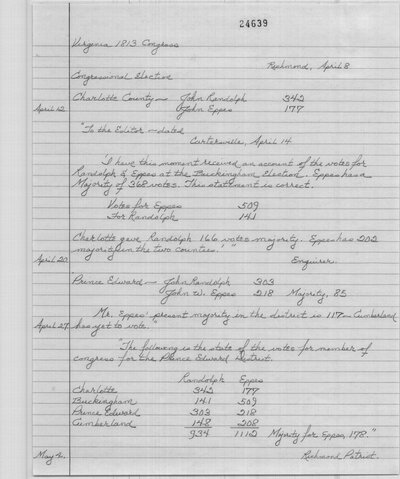 24639
Virginia 1813 Congress
Richmond, April 8
Congressional Election
Charlotte County — John Randolph 342
April 12. John Eppes 177
"To the Editor — dated
Cartersville, April 14
I have this moment received an account of the votes for
Randolph & Eppes at the Buckingham Election. Eppes has a
Majority of 368 votes. This statement is correct.
Votes for Eppes 509
For Randolph 141
Charlotte gave Randolph 166 votes majority. Eppes has 202
majority in the two counties."
April 20. Enquirer.
Prince Edward — John Randolph 303
John W. Eppes 218 Majority, 85
Mr. Eppes' present majority in the district is 117 — Cumberland
April 27. has yet to vote."
"The following is the state of the votes for member of
congress for the Prince Edward District.
Randolph Eppes
Charlotte 342 177
Buckingham 141 509
Prince Edward 303 218
Cumberland 148 208
934 1112 Majority for Eppes, 178."
May 2. Richmond Patriot.